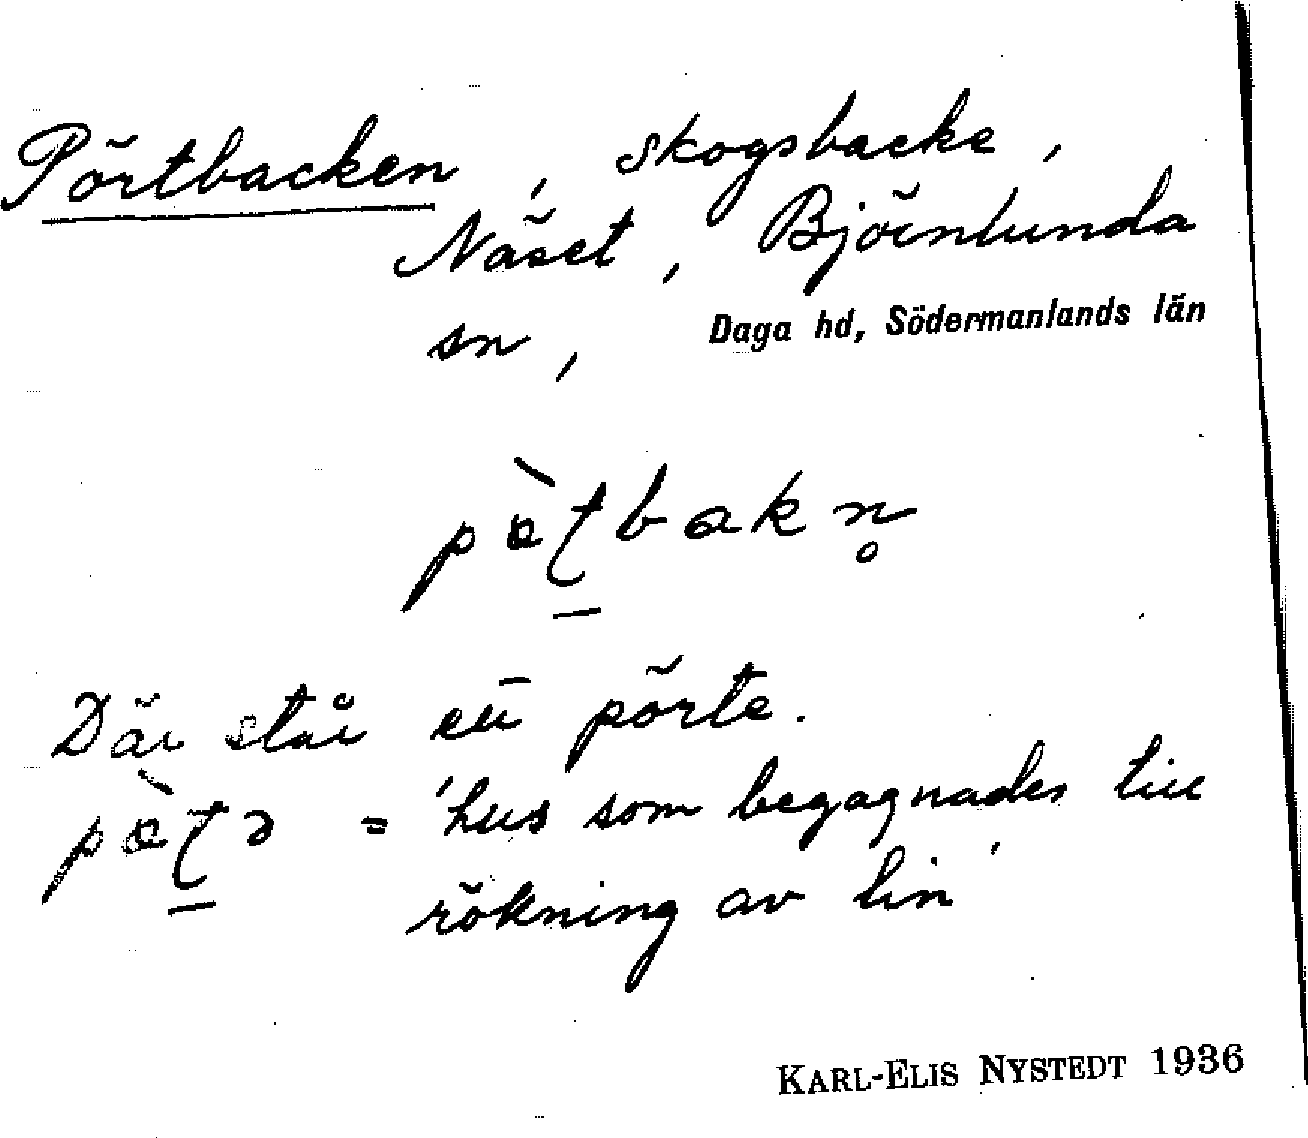 Pörtbacken, skogsbacke,
Näset, Björnlunda
sn, Daga hd, Södermanlands län
Där står ett pörte.
= 'hus som begagnades till
rökning av lin'
KARL-ELIS NYSTEDT 1936